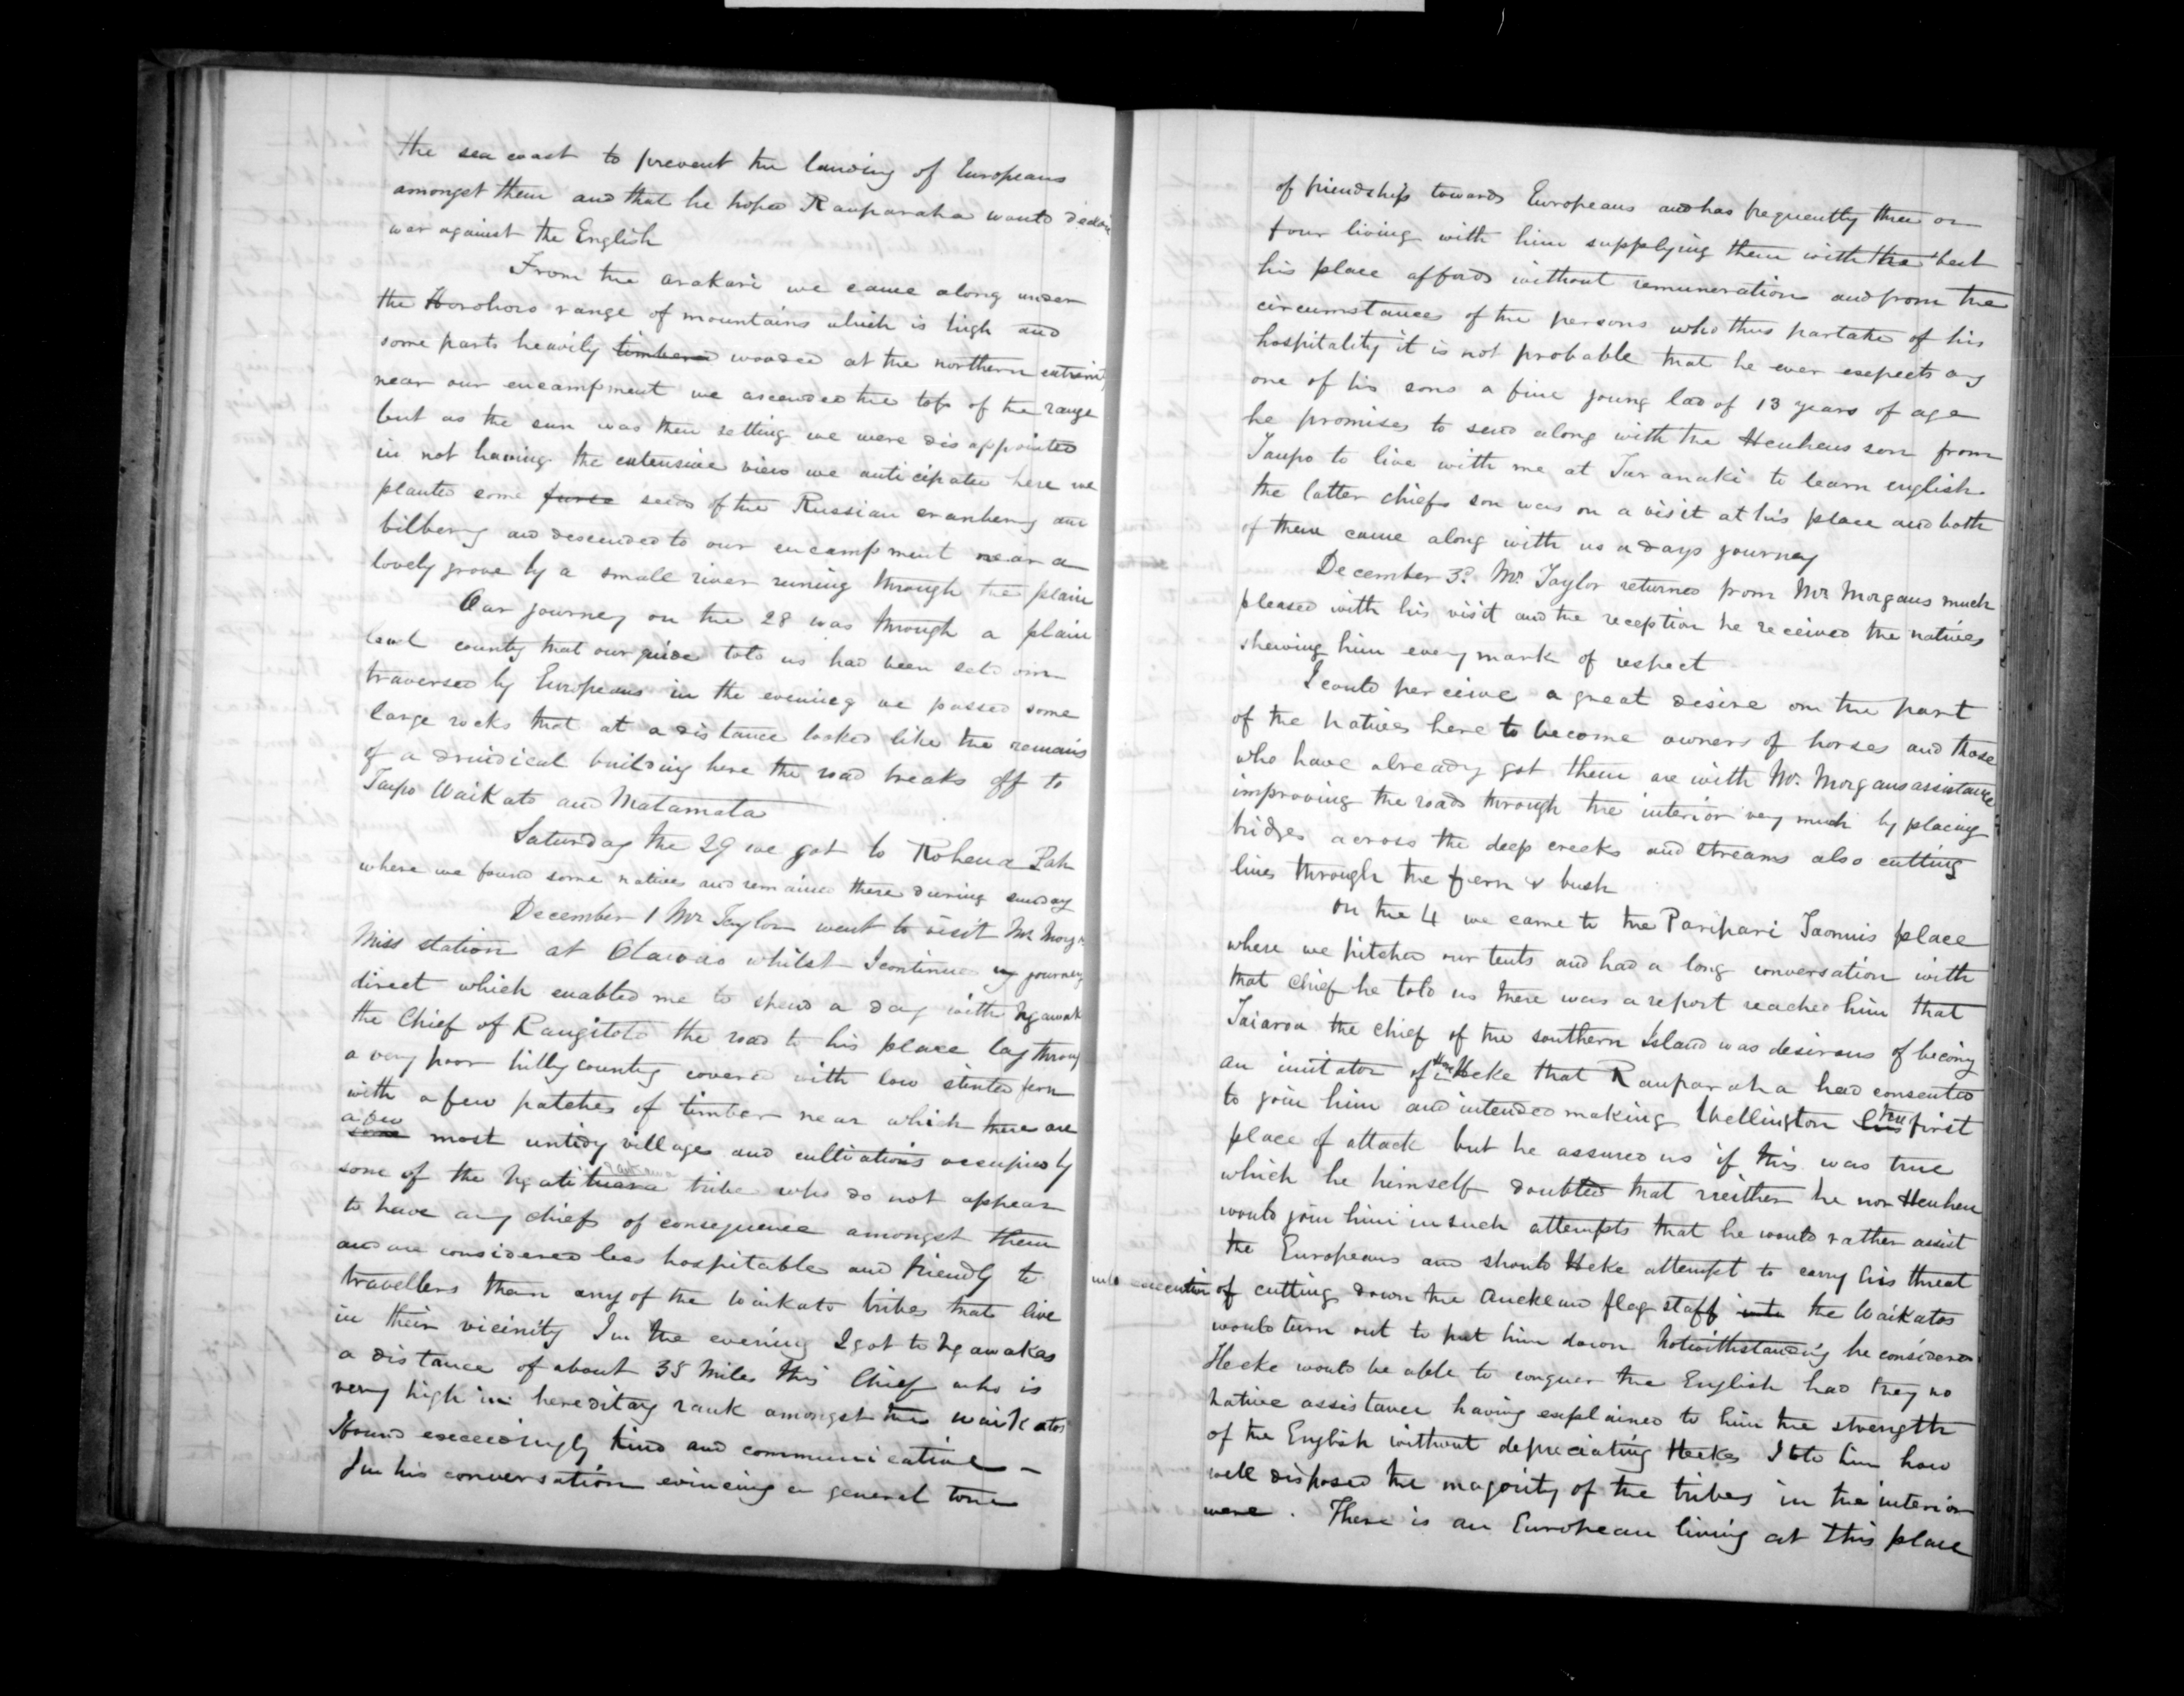 the sea coast to prevent the landing of Europeans
amongst them and that he hoped Rauparaha would declare
war against the English
From the arakari we came along under
the Horohoro range of mountains which is high and
some parts heavily timbered wooded at the northern extremity
near our encampment we ascended the top of the range
but as the sun was then setting we were disappointed
in not having the extensive view we anticipated here we
planted some furse seeds of the Russian cranberry and
bilberry and descended to our encampment near a
lovely grove by a small river runing through the plain
Our journey on the 28 was through a plain
level country that our guide told us had been seldom
traversed by Europeans in the evening we passed some
large rocks that at a distance looked like the remains
of a druidical building here the road breaks off to
Taupo Waikato and Matamata
Saturday the 29 we got to Rohena Pah
where we found some natives and remained there during sunday
December 1 Mr Taylor went to visit Mr Morgan
Miss station at Otawao whilst I continued my journey
direct which enabled me to spend a day with Ngawaka
the Chief of Rangitoto the road to his place lay through
a very poor hilly country covered with low stinted fern
with a few patches of timber near which there are
a few
some most untidy villages and cultivations occupied by
some of the Ngati tribe who do not appear
to have any chiefs of consequence amongst them
and are considered less hospitable and friendly to
travellers than any of the Waikato tribes that live
in their vicinity In the evening I got to Ngawakas
a distance of about 35 miles this Chief who is
very high in hereditary rank amongst the Waikatos
I found exceedingly kind and communicative –
In his conversation evincing a general tone
of friendship towards Europeans and has frequently three or
four living with him supplying them with the best
his place affords without remuneration and from the
circumstances of the persons who thus partake of his
hospitality it is not probable that he ever expects any
one of his sons a fine young lad of 13 years of age
he promises to send along with the Heuheus son from
Taupo to live with me at Taranaki to learn english
the latter chiefs son was on a visit at his place and both
of them came along with us a days journey
December 3d Mr. Taylor returned from Mr Morgans much
pleased with his visit and the reception he received the natives
shewing him every mark of respect
I could perceive a great desire on the part
of the natives here to become owners of horses and those
who have already got them are with Mr. Morgans assistance
improving the roads through the interior very much by placing
bridges across the deep creeks and streams also cutting
lines through the fern & bush
On the 4 we came to the Paripari Taonuis place
where we pitched our tents and had a long conversation with
that Chief he told us there was a report reached him that
Taiaroa the chief of the southern Island was desirous of becoming
an imitator of Hone Heke that Rauparaha had consented
to join him and intended making Wellington his the first
place of attack but he assured us if this was true
which he himself doubted that neither he nor Heuheu
would join him in such attempts that he would rather assist
the Europeans and should Heke attempt to carry his threat
into execution of cutting down the Auckland flag staff into the Waikatos
would turn out to put him down Notwithstanding he considered
Heeke would be able to conquer the English had they no
native assistance having explained to him the strength
of the English without depreciating Heekes I told him how
well disposed the majority of the tribes in the interior
were . There is an European living at this place